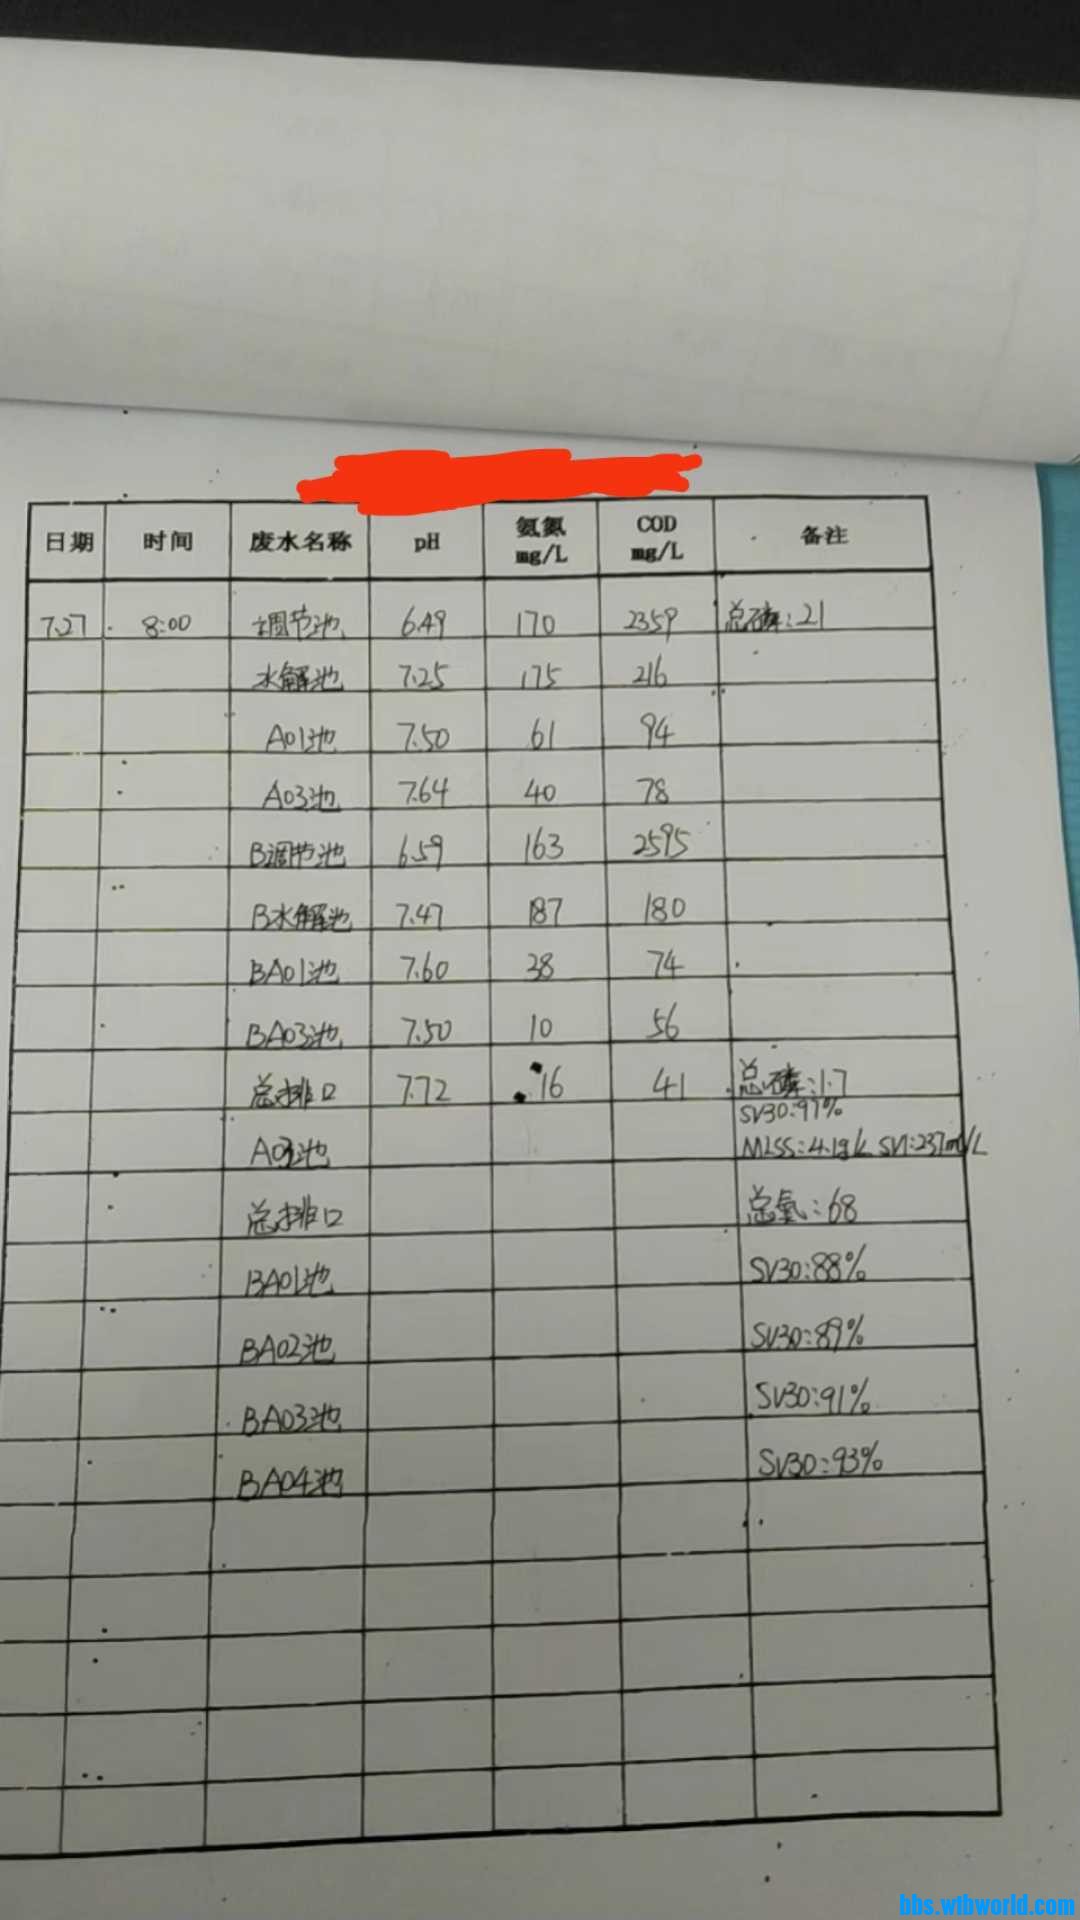 日期 时间 废水名称 pH 氨氮 mg/L COD mg/L 备注
7.27 8:00 调节池 6.49 170 2359 总磷:21
水解池 7.25 175 216
A01池 7.50 61 94
A03池 7.64 40 78
B调节池 6.59 163 2595
B水解池 7.47 187 180
BA01池 7.60 38 74
BA03池 7.50 10 56
总排口 7.72 16 41 总磷:1.7
SV30:97%
A03池 MLSS:4.1g/L SVI:237ml/L
总排口 总氮:68
BA01池 SV30:88%
BA02池 SV30:89%
BA03池 SV30:91%
BA04池 SV30:93%
bbs.wtbworld.com